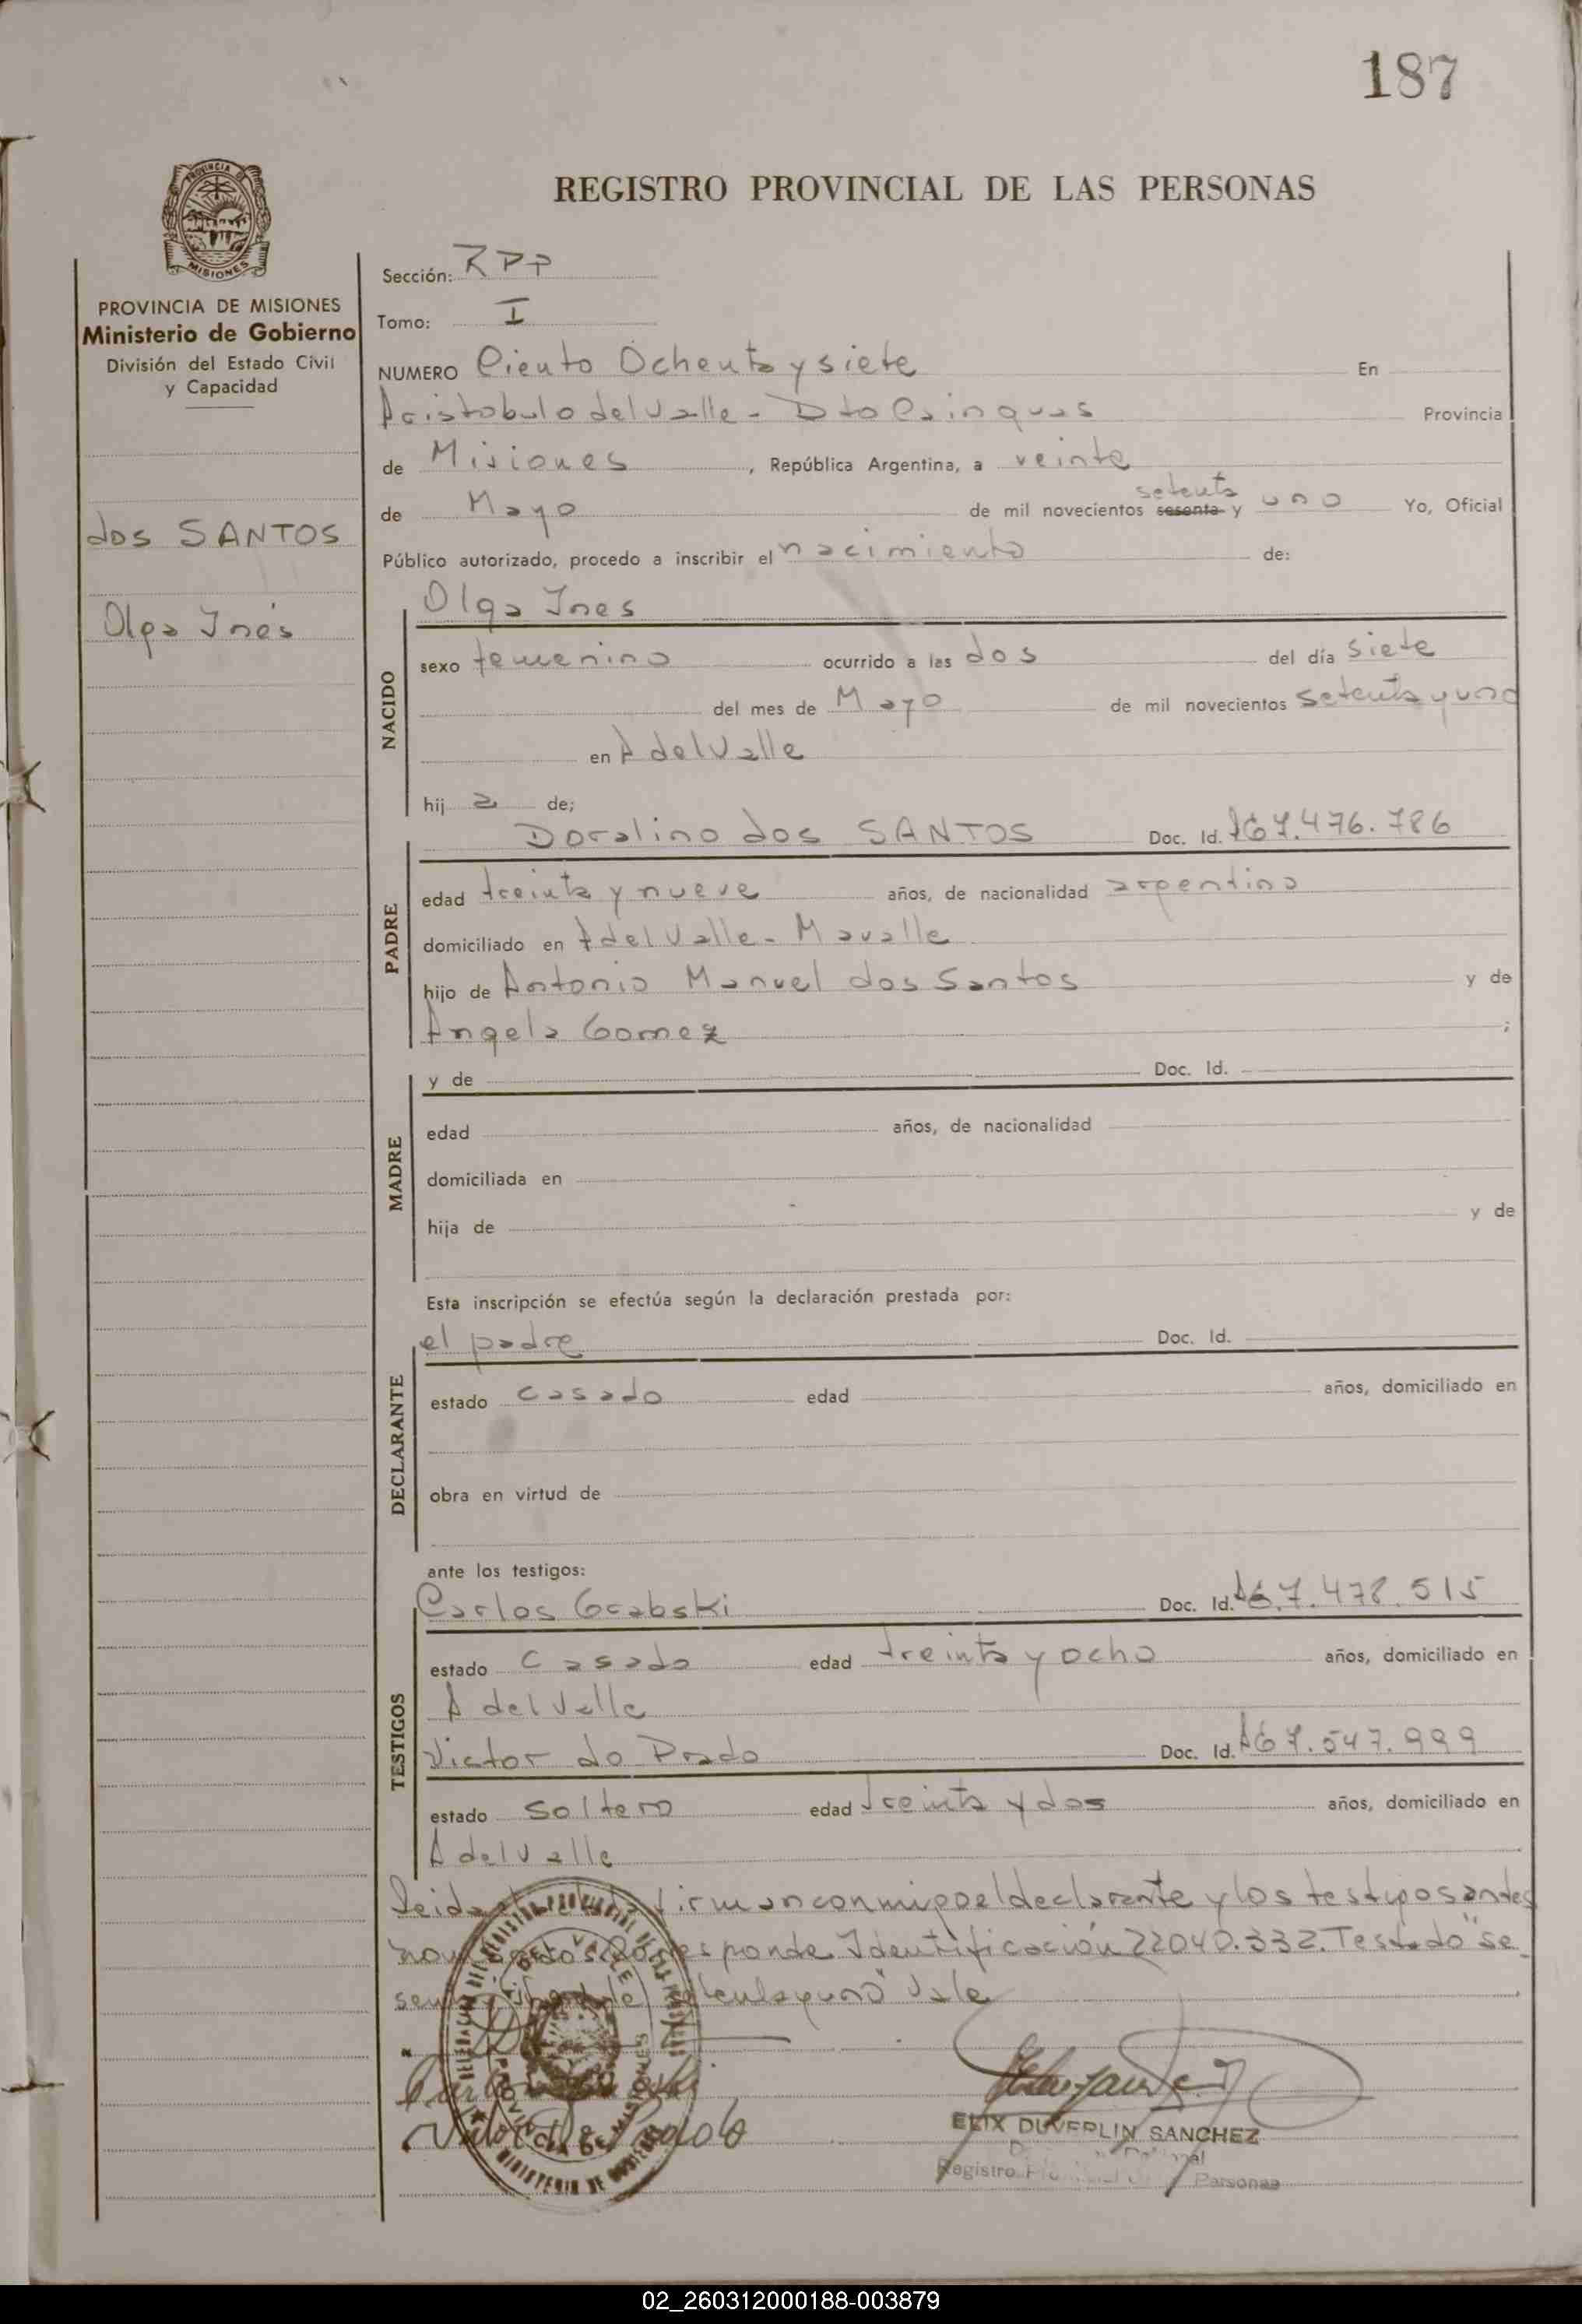 187
PROVINCIA DE
MISIONES
REGISTRO PROVINCIAL DE LAS PERSONAS
PROVINCIA DE MISIONES
Ministerio de Gobierno
División del Estado Civil
y Capacidad
dos SANTOS
Olga Inés
Sección: RPP
Tomo: I
NUMERO Ciento Ochenta y siete En
Aristobulo del Valle - Dto Cainguas Provincia
de Misiones, República Argentina, a veinte
setenta
de Mayo de mil novecientos sesenta y uno Yo, Oficial
Público autorizado, procedo a inscribir el nacimiento de:
NACIDO
Olga Ines
sexo femenino ocurrido a las dos del día siete
del mes de Mayo de mil novecientos setenta y uno
en A del Valle
hij a de;
PADRE
Doralino dos SANTOS Doc. Id. 7.476.786
edad treinta y nueve años, de nacionalidad argentina
domiciliado en A del Valle - Mavalle
hijo de Antonio Manuel dos Santos y de
Angela Gomez ;
MADRE
y de Doc. Id.
edad años, de nacionalidad
domiciliada en
hija de y de
Esta inscripción se efectúa según la declaración prestada por:
DECLARANTE
el padre Doc. Id.
estado casado edad años, domiciliado en
obra en virtud de
ante los testigos:
TESTIGOS
Carlos Grabski Doc. Id. 7.478.515
estado casado edad treinta y ocho años, domiciliado en
A del Valle
Victor do Prado Doc. Id. 7.547.999
estado soltero edad treinta y dos años, domiciliado en
A del Valle
Leida firman conmigo el declarante y los testigos antes
Identificación 22040.332. Testado "se
setenta y uno" Vale
ELIX DUVERLIN SANCHEZ
Registro Personas
02_260312000188-003879